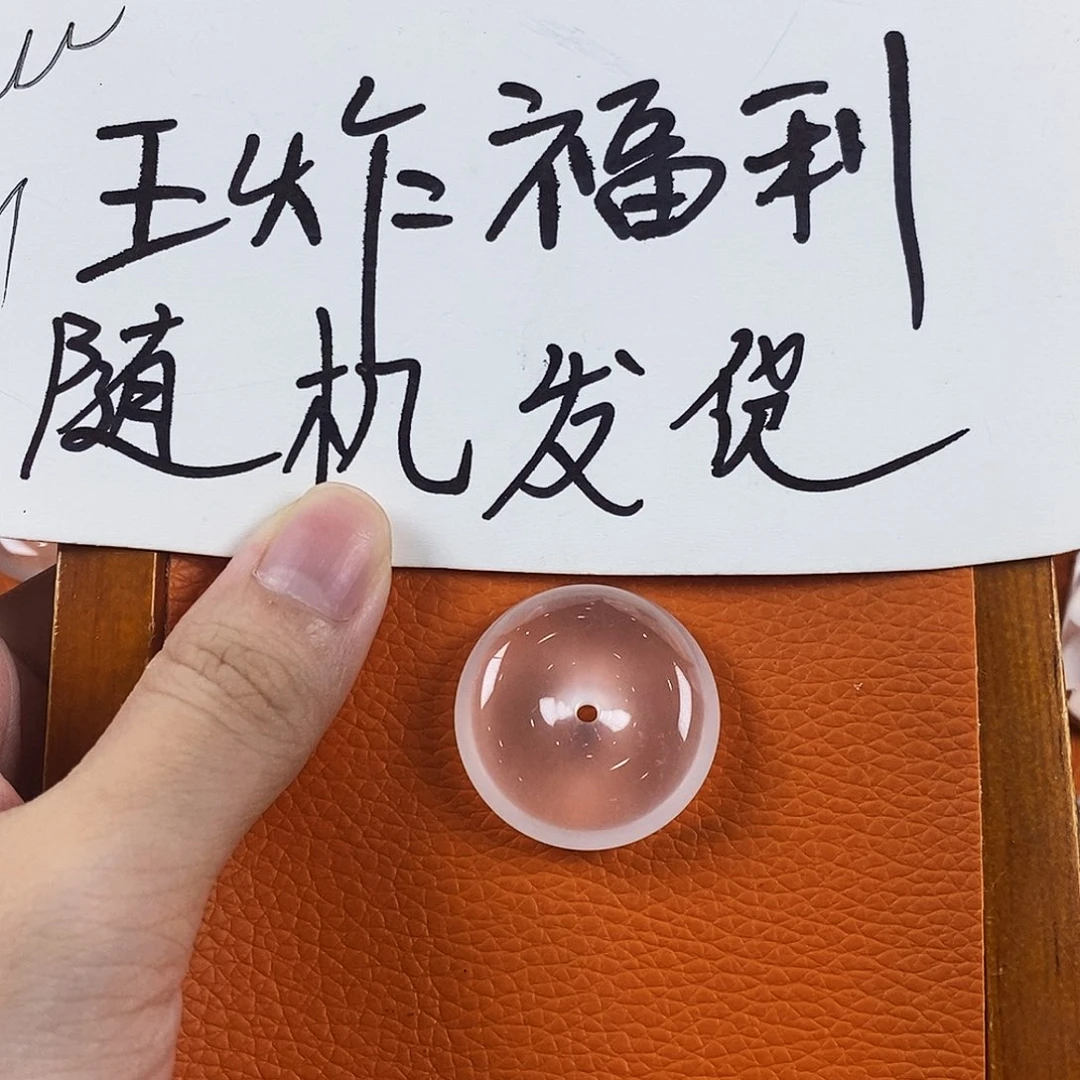 王炸福利
随机发货